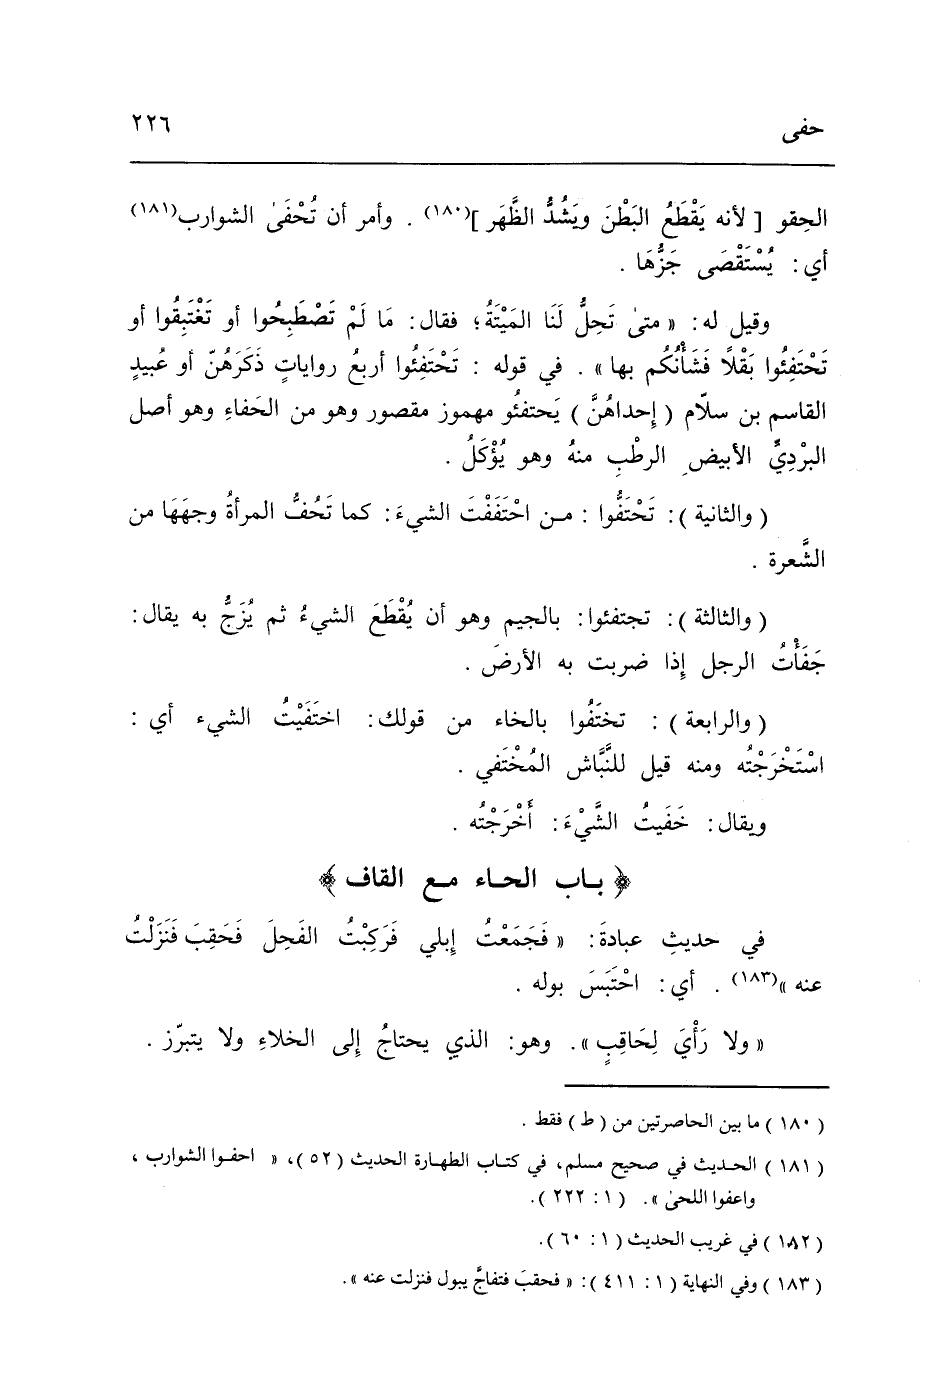 حفى ٢٢٦
الحِقو [ لأنه يَقْطَعُ البَطْنَ ويَشُدُّ الظَّهَر ](١٨٠) . وأمر أن تُحْفَىٰ الشوارب(١٨١)
أي: يُسْتَقْصَى جَزُّهَا .
وقيل له: « متىٰ تَحِلُّ لَنَا المَيْتَةُ؛ فقال: مَا لَمْ تَصْطَبِحُوا أو تَغْتَبِقُوا أو
تَحْتَفِئُوا بَقْلاً فَشَأْنُكُم بها» . في قوله : تَحْتَفِئُوا أربعُ رواياتٍ ذَكَرَهُنّ أو عُبيدٍ
القاسم بن سلّام ( إحداهُنَّ ) يَحتفئُو مهموز مقصور وهو من الحَفاءِ وهو أصل
البرْدِيِّ الأبيضِ الرطْبِ منهُ وهو يُؤْكَلُ .
( والثانية ): تَحْتَفُّوا : مـن احْتَفَفْتَ الشيءَ: كما تَحُفُّ المرأةُ وجهَهَا من
الشَّعرة .
( والثالثة ): تجتفئوا: بالجيم وهو أن يُقْطَعَ الشيءُ ثم يُزَجُّ به يقال:
جَفَأْتُ الرجل إذا ضربت به الأرضَ .
( والرابعة ) : تختَفُوا بالخاء من قولك: اختَفَيْتُ الشيء أي :
اسْتَخْرَجْتُه ومنه قيل للنَّبَّاش المُخْتَفي .
ويقال: خَفَيتُ الشَّيْءَ: أَخْرَجْتُه .
﴿ بـاب الحـاء مـع القاف ﴾
في حديثِ عبادةَ: « فَجَمَعْتُ إبلي فَرَكِبْتُ الفَحِلَ فَحَقِبَ فَنَزَلْتُ
عنه »(١٨٣) . أي: احْتَبَسَ بوله .
« ولا رَأْيَ لِحَاقِبٍ ». وهو: الذي يحتاجُ إلى الخلاءِ ولا يتبرّز .
( ١٨٠ ) ما بين الحاصرتين من ( ط ) فقط .
( ١٨١ ) الحـديث في صحيح مسلم، في كتـاب الطهـارة الحديث ( ٥٢ )، « احفـوا الشوارب ،
واعفوا اللحىٰ ». ( ١ : ٢٢٢ ).
( ١٨٢ ) في غريب الحديث ( ١ : ٦٠ ).
( ١٨٣ ) وفي النهاية ( ١ : ٤١١ ): « فحقبَ فتفاجَّ يبول فنزلت عنه ».